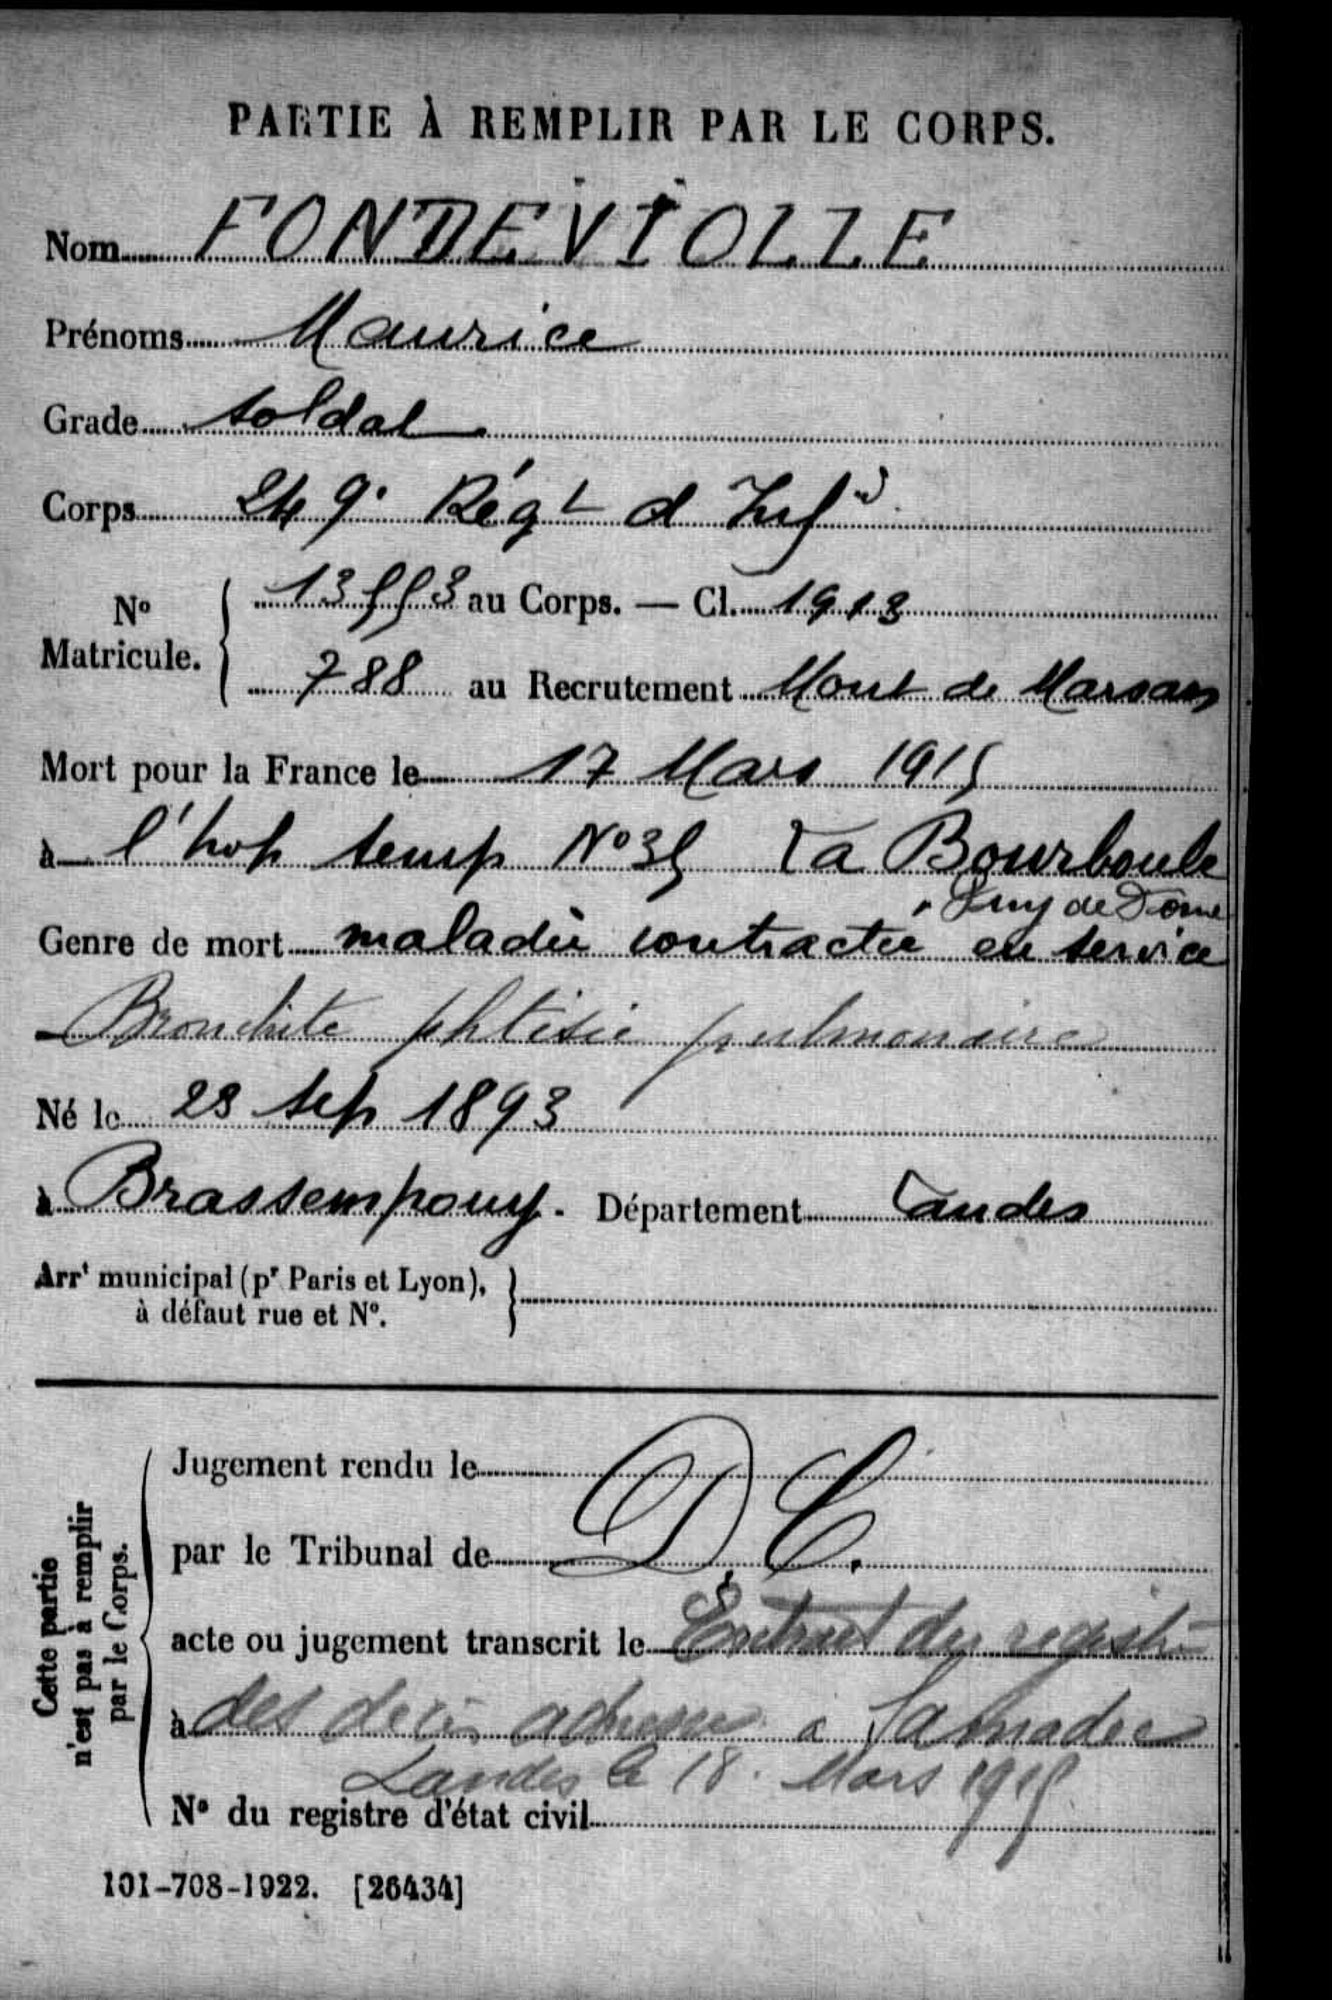 PARTIE À REMPLIR PAR LE CORPS.
Nom FONDEVIOLLE
Prénoms Maurice
Grade soldat
Corps 249e Régt d'Infie
No Matricule. 13553 au Corps. — Cl. 1913
788 au Recrutement Mont de Marsan
Mort pour la France le 17 Mars 1915
à l'hop temp No 35 La Bourboule
Puy de Dome
Genre de mort maladie contractée en service
Bronchite phtisie pulmonaire
Né le 28 sep 1893
à Brassempouy. Département Landes
Arrt municipal (pr Paris et Lyon),
à défaut rue et No.
Cette partie
n'est pas à remplir
par le Corps.
Jugement rendu le
par le Tribunal de D C.
acte ou jugement transcrit le Extrait du registre
à des décès adressé à Samadet
Landes le 18 Mars 1915
No du registre d'état civil
101-708-1922. [26434]